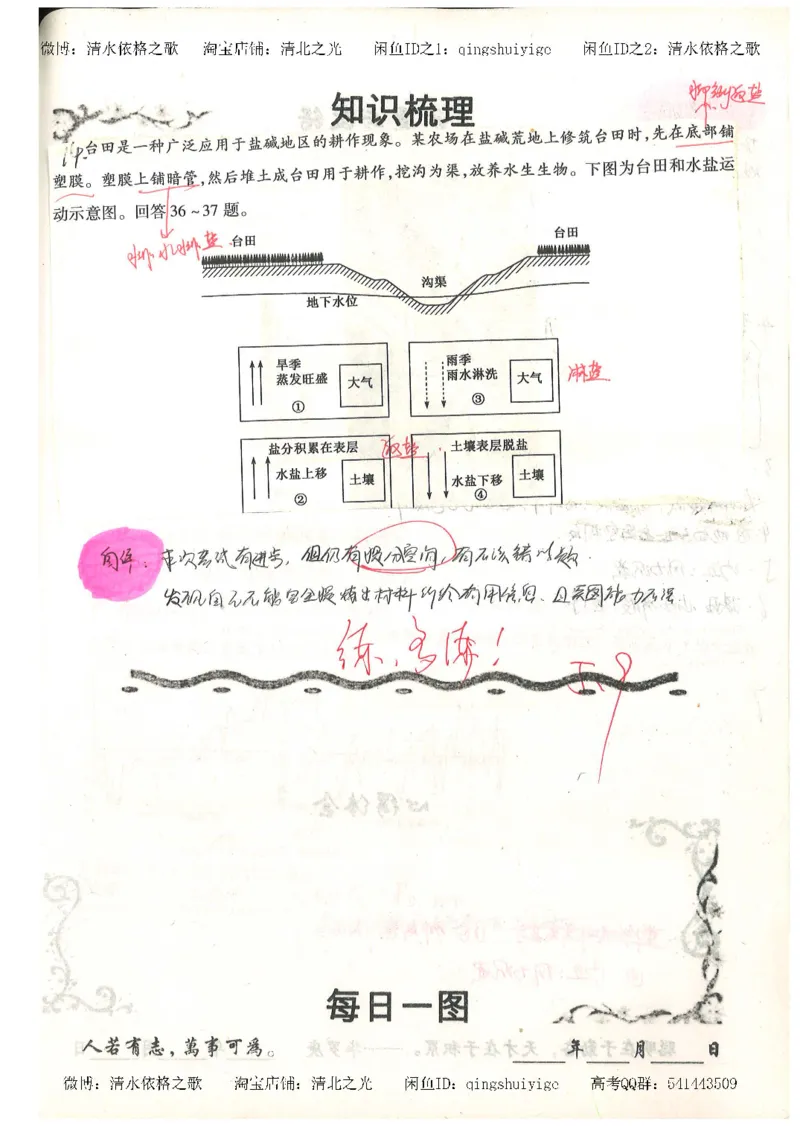 微博：清水依格之歌　淘宝店铺：清北之光　闲鱼ID之1：qingshuiyige　闲鱼ID之2：清水依格之歌
知识梳理
台田是一种广泛应用于盐碱地区的耕作现象。某农场在盐碱荒地上修筑台田时，先在底部铺
塑膜。塑膜上铺暗管，然后堆土成台田用于耕作，挖沟为渠，放养水生生物。下图为台田和水盐运
动示意图。回答36～37题。
排水排盐
台田
台田
沟渠
地下水位
旱季
蒸发旺盛
大气
①
雨季
雨水淋洗
大气
③
淋盐
盐分积累在表层
水盐上移
土壤
②
返盐
土壤表层脱盐
水盐下移
土壤
④
自评：本次考试有进步，但仍有很大空间，有不该错
练，多练！
每日一图
人若有志，萬事可為。
年　月　日
微博：清水依格之歌　淘宝店铺：清北之光　闲鱼ID：qingshuiyige　高考QQ群：541443509